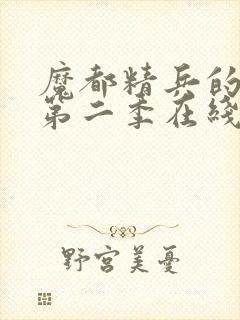 魔都精兵的
第二季在线
野宫美憂